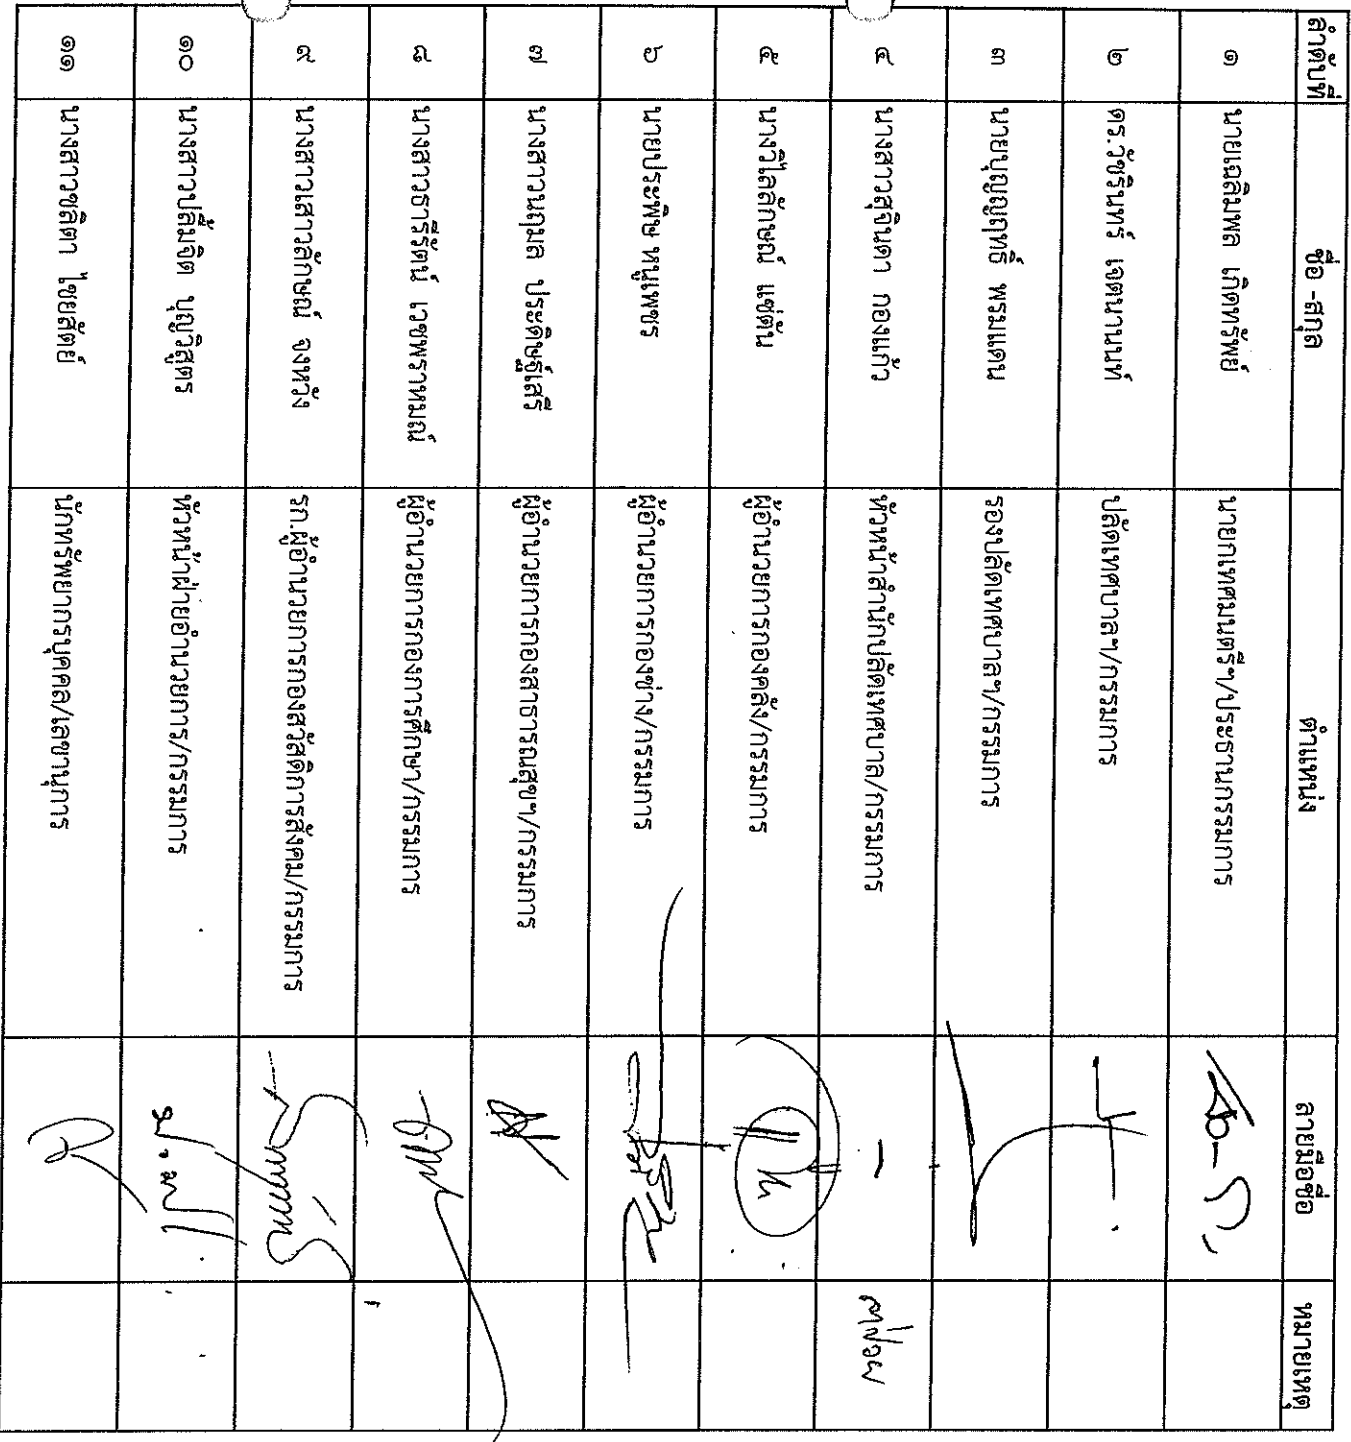 ลำดับที่ ชื่อ -สกุล ตำแหน่ง ลายมือชื่อ หมายเหตุ
๑ นายเฉลิมพล เกิดทรัพย์ นายกเทศมนตรีฯ/ประธานกรรมการ
๒ ดร.วัชรินทร์ เจตนานนท์ ปลัดเทศบาลฯ/กรรมการ
๓ นายบุญญฤทธิ์ พรมแดน รองปลัดเทศบาลฯ/กรรมการ
๔ นางสาวสุจินดา ทองแก้ว หัวหน้าสำนักปลัดเทศบาล/กรรมการ - ลาป่วย
๕ นางวิไลลักษณ์ แซ่ตัน ผู้อำนวยการกองคลัง/กรรมการ
๖ นายประพิษ หนูเพชร ผู้อำนวยการกองช่าง/กรรมการ
๗ นางสาวนฤมล ประดิษฐ์เสรี ผู้อำนวยการกองสาธารณสุขฯ/กรรมการ
๘ นางสาวธารีรัตน์ เวชพราหมณ์ ผู้อำนวยการกองการศึกษา/กรรมการ
๙ นางสาวเสาวลักษณ์ จงหวัง รก.ผู้อำนวยการกองสวัสดิการสังคม/กรรมการ
๑๐ นางสาวปลื้มจิต บุญวิสูตร หัวหน้าฝ่ายอำนวยการ/กรรมการ
๑๑ นางสาวชลิตา ไชยสัตย์ นักทรัพยากรบุคคล/เลขานุการ